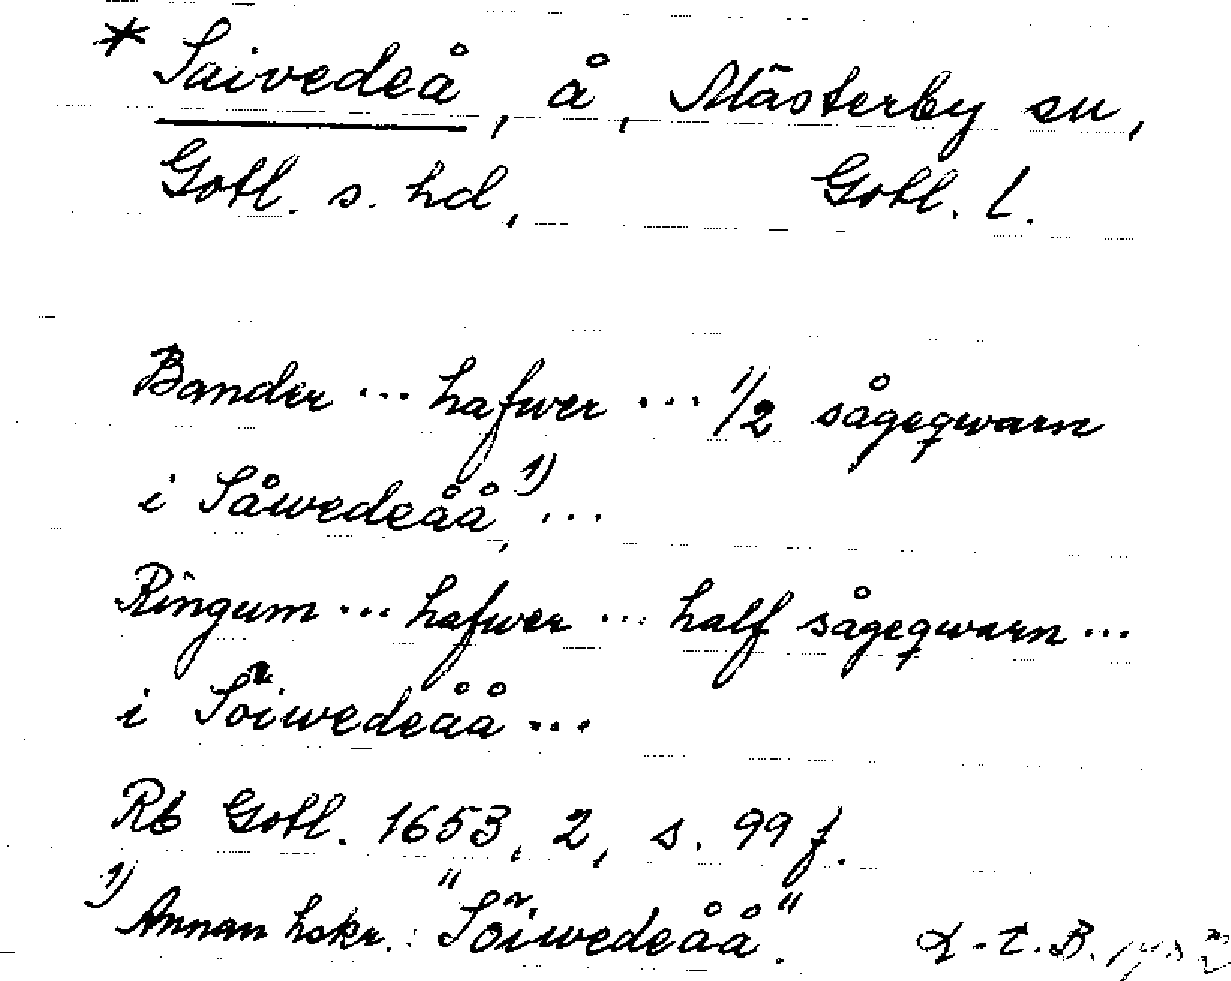 * Saivedeå, å, Mästerby sn,
Gotl. s. hd, Gotl. l.
Bander ... hafwer ... 1/2 sågeqwarn
i Såwedeåå, 1) ...
Ringum ... hafwer ... half sågeqwarn ...
i Söiwedeåå ...
Rb Gotl. 1653, 2, s. 99 f.
1) Annan hskr.: "Söiwedeåå".